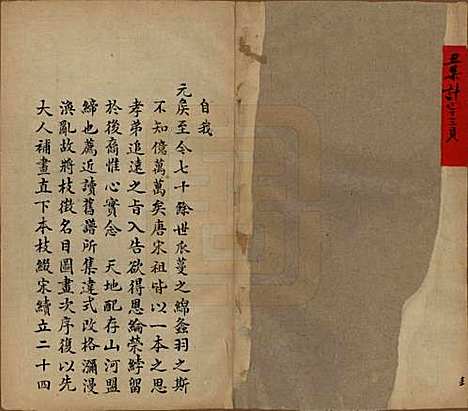 丑集計七十三頁
自我
元矦至今七十餘世瓜蔓之綿螽羽之斯
不知億萬萬矣唐宋祖皆以一本之思
孝弟追遠之旨入告欲得恩綸榮䋣留
於後裔惟心實念　天地配存山河盟
締也薦近讀舊譜所集違式改格瀰漫
渙亂故將枝徵名目圖畫次序復以先
大人補畫直下本枝綴宋續立二十四